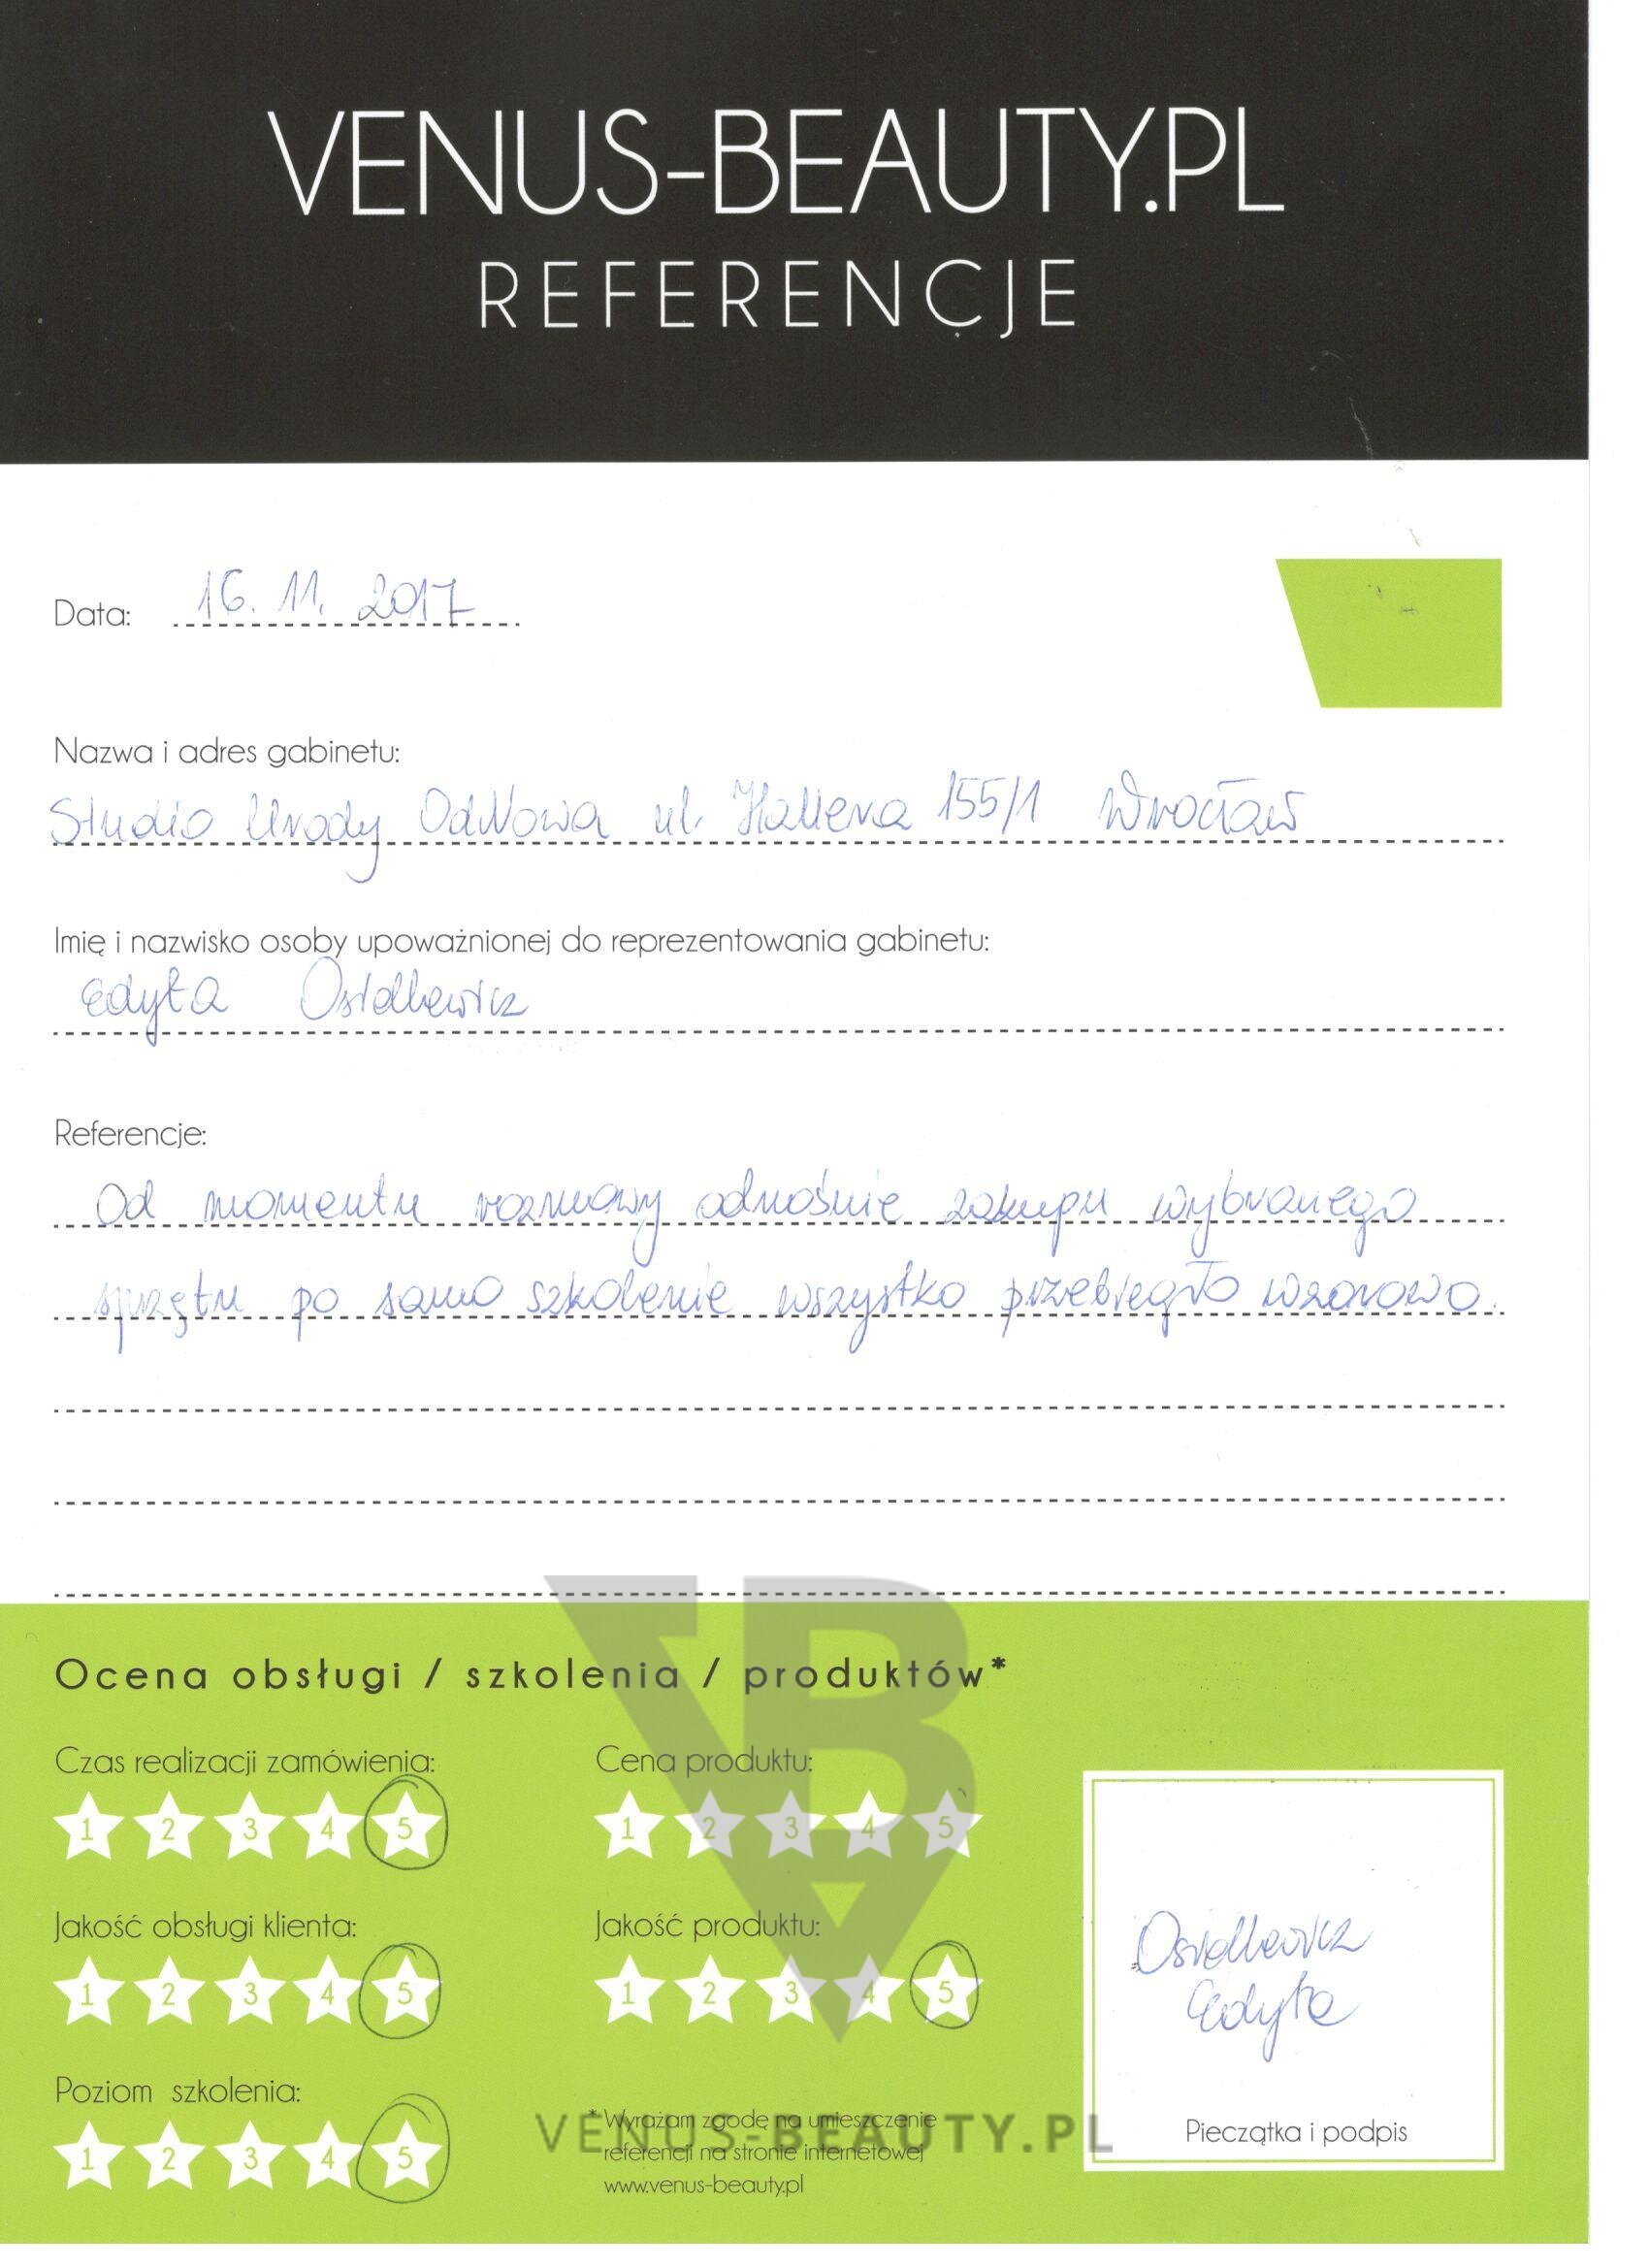 VENUS-BEAUTY.PL
REFERENCJE
Data: 16. 11. 2017
Nazwa i adres gabinetu:
Studio Urody OdNowa ul. Hallera 155/1 Wrocław
Imię i nazwisko osoby upoważnionej do reprezentowania gabinetu:
Edyta Osidkewicz
Referencje:
Od momentu rozmowy odnośnie zakupu wybranego
sprzętu po samo szkolenie wszystko przebiegło wzorowo.
Ocena obsługi / szkolenia / produktów*
Czas realizacji zamówienia:
1 2 3 4 5
Cena produktu:
1 2 3 4 5
Jakość obsługi klienta:
1 2 3 4 5
Jakość produktu:
1 2 3 4 5
Poziom szkolenia:
1 2 3 4 5
* Wyrażam zgodę na umieszczenie
referencji na stronie internetowej
www.venus-beauty.pl
VENUS-BEAUTY.PL
Edyta
Pieczątka i podpis